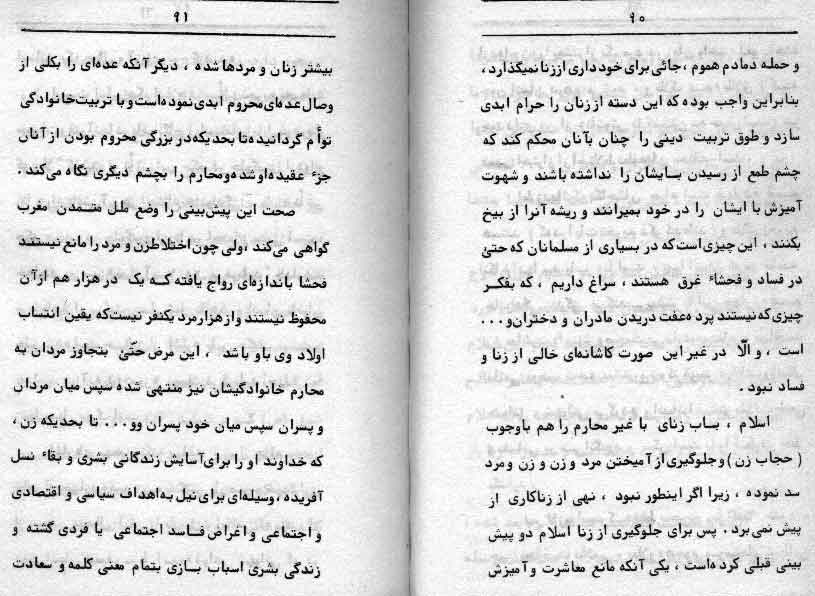 ۹۰
و حمله دمادم هموم ، جائی برای خودداری اززنا نمیگذارد ،
بنابراین واجب بوده که این دسته از زنان را حرام ابدی
سازد و طوق تربیت دینی را چنان بآنان محکم کند که
چشم طمع از رسیدن بسایشان را نداشته باشند و شهوت
آمیزش با ایشان را در خود بمیرانند و ریشه آنرا از بیخ
بکنند ، این چیزی است که در بسیاری از مسلمانان که حتیٰ
در فساد و فحشاء غرق هستند ، سراغ داریم ، که بفکر
چیزی که نیستند پرده عفت دریدن مادران و دختران و ...
است ، و الّا در غیر این صورت کاشانه‌ای خالی از زنا و
فساد نبود .
اسلام ، بساب زنای با غیر محارم را هم باوجوب
( حجاب زن ) و جلوگیری از آمیختن مرد و زن و زن و مرد
سد نموده ، زیرا اگر اینطور نبود ، نهی از زناکاری از
پیش نمی‌برد . پس برای جلوگیری از زنا اسلام دو پیش
بینی قبلی کرده است ، یکی آنکه مانع معاشرت و آمیزش
۹۱
بیشتر زنان و مردها شده ، دیگر آنکه عده‌ای را بکلی از
وصال عده‌ای محروم ابدی نموده است و با تربیت خانوادگی
توأم گردانیده تا بحدیکه در بزرگی محروم بودن از آنان
جزء عقیده او شده و محارم را بچشم دیگری نگاه می‌کند .
صحت این پیش‌بینی را وضع ملل متمدن مغرب
گواهی می‌کند ، ولی چون اختلاط زن و مرد را مانع نیستند
فحشا باندازه‌ای رواج یافته که یک در هزار هم از آن
محفوظ نیستند و از هزار مرد یکنفر نیست که یقین انتساب
اولاد وی باو باشد ، این مرض حتّیٰ بتجاوز مردان به
محارم خانوادگیشان نیز منتهی شده سپس میان مردان
و پسران سپس میان خود پسران وو ... تا بحدیکه زن ،
که خداوند او را برای آسایش زندگانی بشری و بقاء نسل
آفریده ، وسیله‌ای برای نیل به اهداف سیاسی و اقتصادی
و اجتماعی و اغراض فاسد اجتماعی یا فردی گشته و
زندگی بشری اسباب بازی بتمام معنی کلمه و سعادت